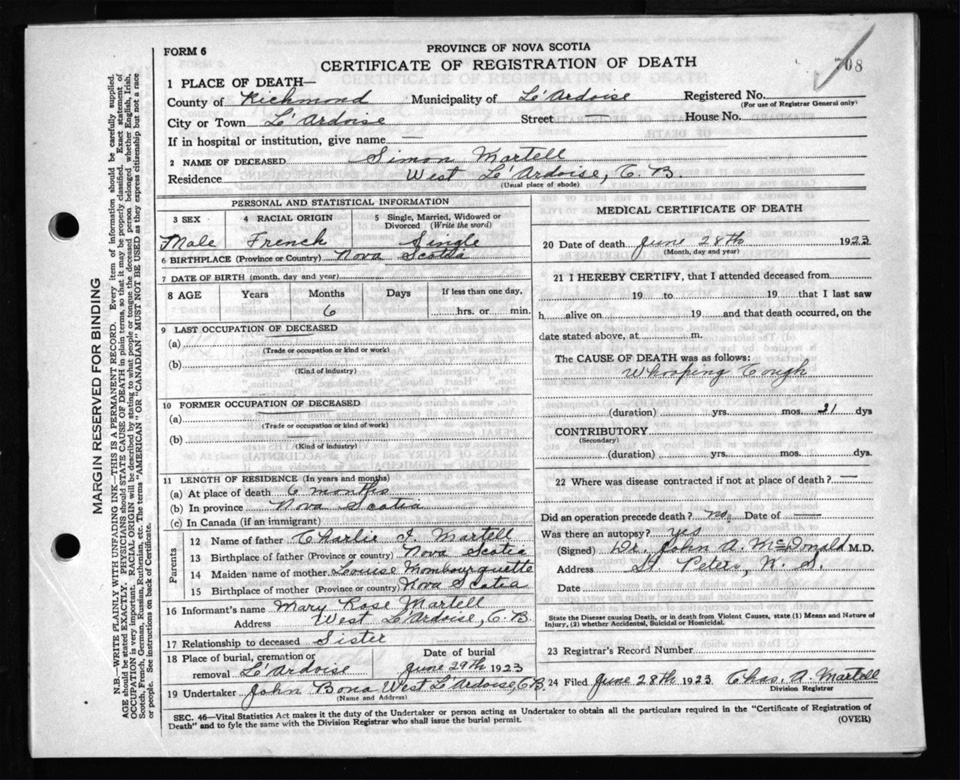 FORM 6
PROVINCE OF NOVA SCOTIA
CERTIFICATE OF REGISTRATION OF DEATH
708
1 PLACE OF DEATH—
County of Richmond Municipality of L'Ardoise Registered No.
(For use of Registrar General only)
City or Town L'Ardoise Street House No.
If in hospital or institution, give name —
2 NAME OF DECEASED Simon Martell
Residence West L'Ardoise, C. B.
(Usual place of abode)
PERSONAL AND STATISTICAL INFORMATION
3 SEX 4 RACIAL ORIGIN 5 Single, Married, Widowed or Divorced (Write the word)
Male French Single
6 BIRTHPLACE (Province or Country) Nova Scotia
7 DATE OF BIRTH (month, day and year)
8 AGE Years Months Days If less than one day,
6 hrs. or min.
9 LAST OCCUPATION OF DECEASED
(a)
(Trade or occupation or kind or work)
(b)
(Kind of industry)
10 FORMER OCCUPATION OF DECEASED
(a)
(Trade or occupation or kind of work)
(b)
(Kind of industry)
11 LENGTH OF RESIDENCE (In years and months)
(a) At place of death 6 months
(b) In province Nova Scotia
(c) In Canada (if an immigrant)
Parents
12 Name of father Charlie I. Martell
13 Birthplace of father (Province or country) Nova Scotia
14 Maiden name of mother Louise Mombourquette
15 Birthplace of mother (Province or country) Nova Scotia
16 Informant's name Mary Rose Martell
Address West L'Ardoise, C. B.
17 Relationship to deceased Sister
18 Place of burial, cremation or removal L'Ardoise
Date of burial June 29th 1923
19 Undertaker John Bona West L'Ardoise, C.B.
(Name and Address)
MEDICAL CERTIFICATE OF DEATH
20 Date of death June 28th 1923
(Month, day and year)
21 I HEREBY CERTIFY, that I attended deceased from
19 to 19 that I last saw
h alive on 19 and that death occurred, on the
date stated above, at m.
The CAUSE OF DEATH was as follows:
Whooping Cough
(duration) yrs. mos. 21 dys
CONTRIBUTORY
(Secondary)
(duration) yrs. mos. dys.
22 Where was disease contracted if not at place of death? —
Did an operation precede death? no. Date of —
Was there an autopsy? yes
(Signed) Dr. John A. McDonald M.D.
Address St. Peters, N. S.
Date
State the Disease causing Death, or in death from Violent Causes, state (1) Means and Nature of
Injury, (2) whether Accidental, Suicidal or Homicidal.
23 Registrar's Record Number
24 Filed June 28th 1923 Chas. A. Martell
Division Registrar
SEC. 46—Vital Statistics Act makes it the duty of the Undertaker or person acting as Undertaker to obtain all the particulars required in the "Certificate of Registration of
Death" and to fyle the same with the Division Registrar who shall issue the burial permit.
(OVER)
MARGIN RESERVED FOR BINDING
N.B.—WRITE PLAINLY WITH UNFADING INK—THIS IS A PERMANENT RECORD. Every item of information should be carefully supplied.
AGE should be stated EXACTLY. PHYSICIANS should STATE CAUSE OF DEATH in plain terms, so that it may be properly classified. Exact statement of
OCCUPATION is very important. RACIAL ORIGIN will be described by stating to what people or tongue the deceased person belonged whether English, Irish,
Scotch, French, German, Russian, Ruthenian, etc. The terms "AMERICAN" OR "CANADIAN" MUST NOT BE USED as they express citizenship but not a race
or people. See instructions on back of Certificate.